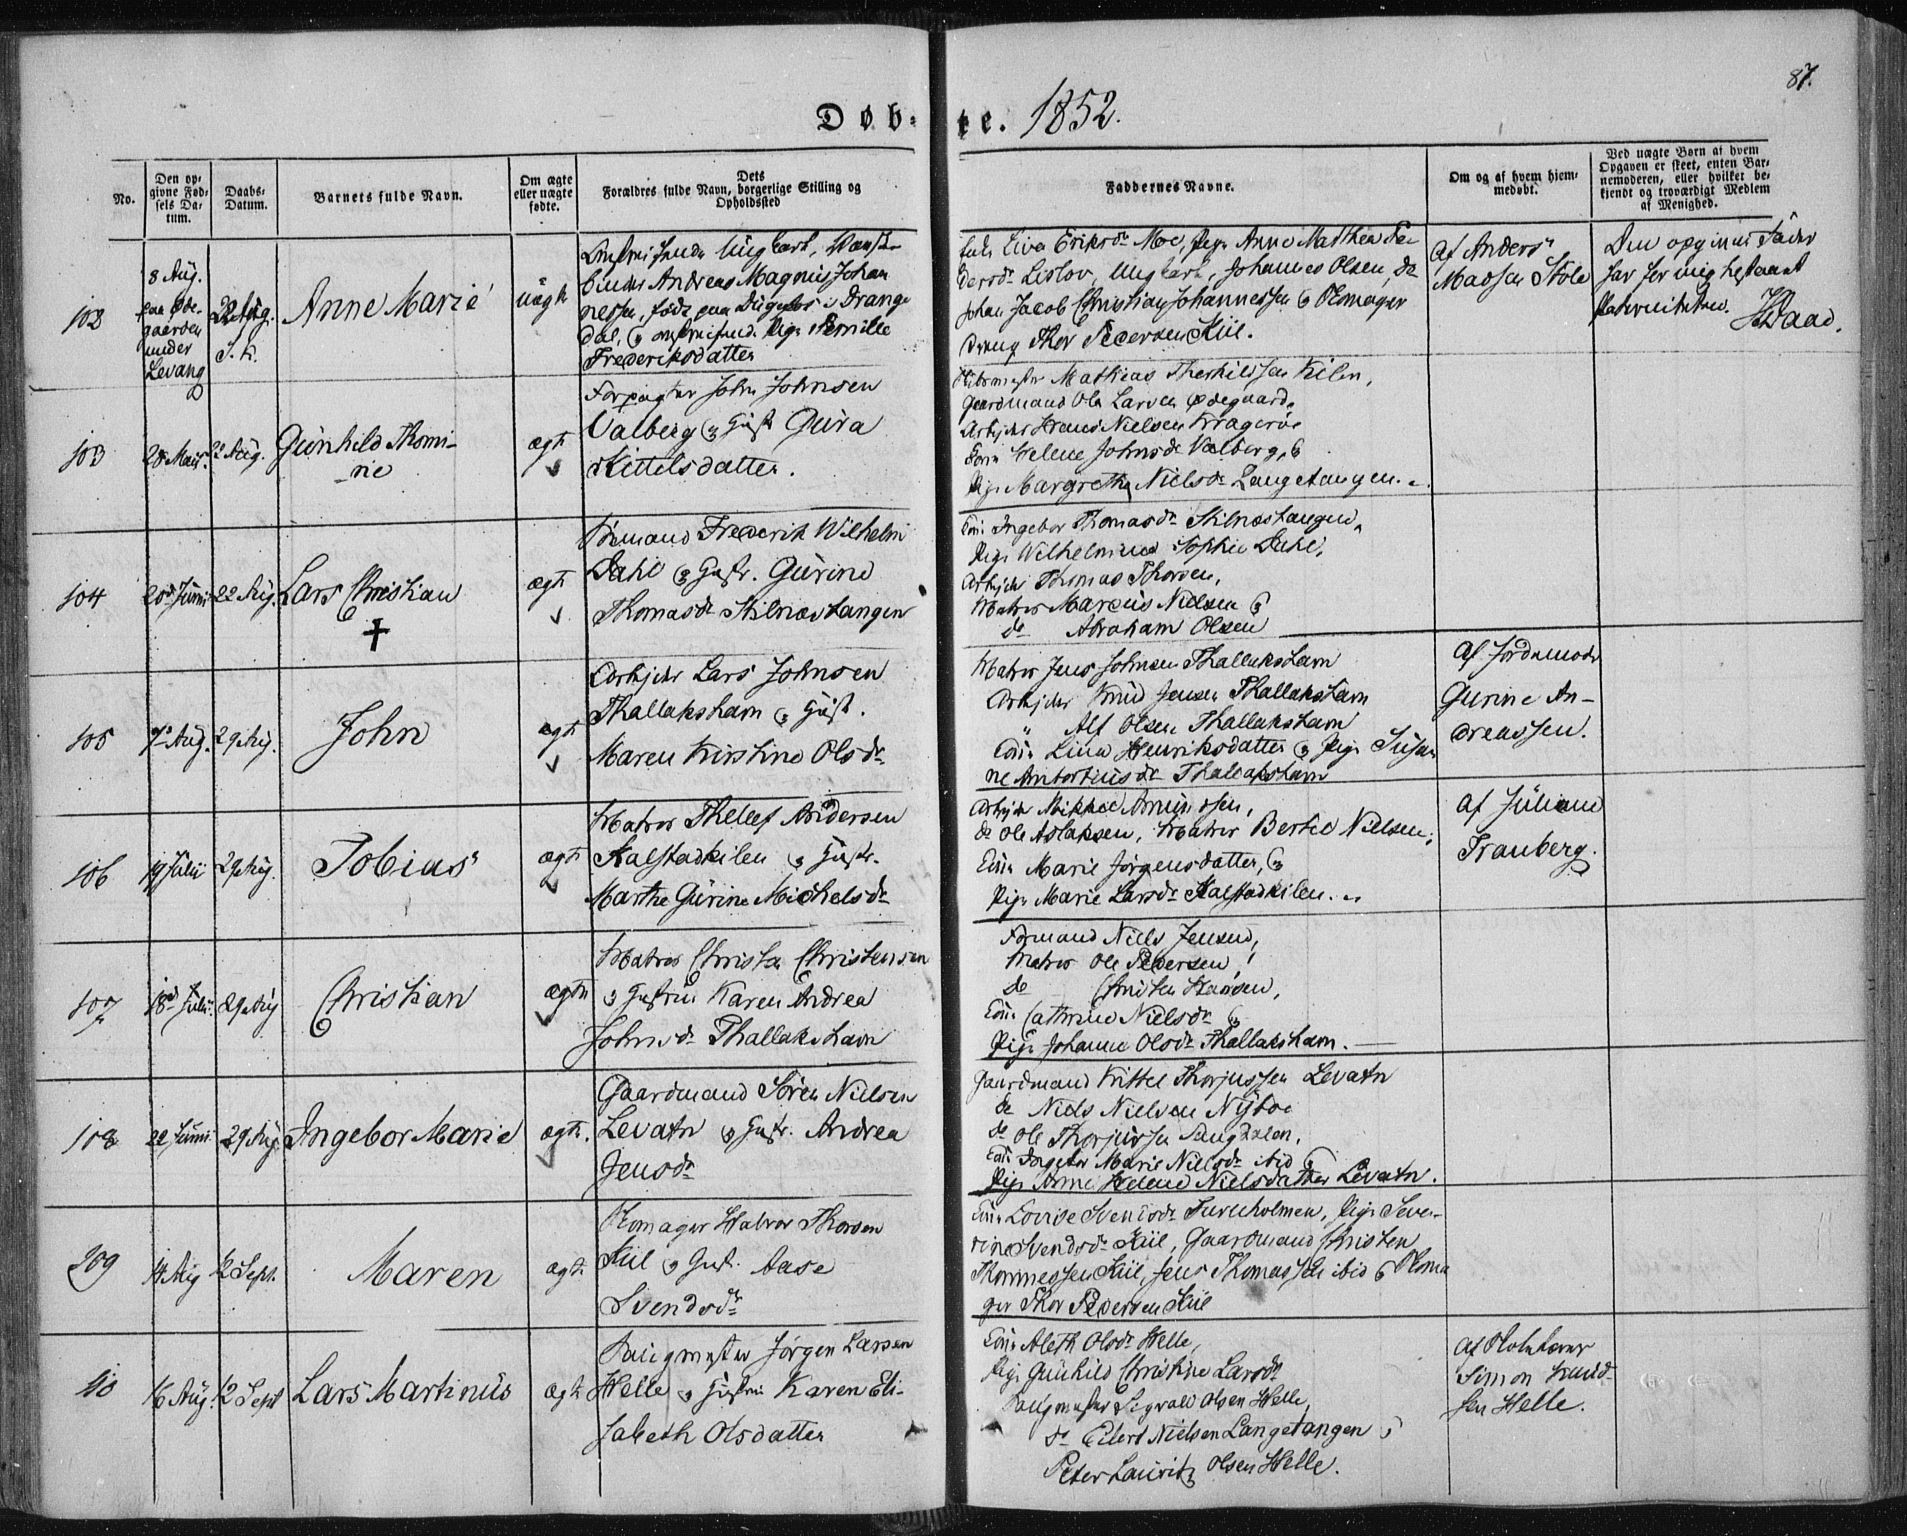 87.
Døb- te. 1852.
No.
Den op-
givne Fød-
sels Da-
tum.
Daabs-
Datum.
Barnets fulde Navn.
Om ægte
eller uægte
fødte.
Dets
Forældres fulde Navn, borgerlige Stilling og
Opholdssted
Faddernes Navne.
Om og af hvem hjem-
medøbt.
Ved uægte Børn af hvem
Opgaven er skeet, enten Bar-
nemoderen, eller hvilket be-
kjendt og troværdigt Medlem
af Menighed.
102
8 Aug.
paa Øde-
gaarden
under
Levang
22 Aug.
Anne Marie
uægte
Ungkarl,
Andreas Magnus Johan
nessen, født paa i Drange
dal, Pige Pernille
Frederiksdatter
Eriksdr Moe, Pige Anne Mathea Pe
dersdr Lislov, Ungkarl, Johannes Olsen, do
Johan Jacob Christian Johannessen
Dreng Thor Pedersen Kiil.
af Anders
Madsen Stole
Den opgivne Fader
har for mig bestaaet
Paterniteten.
103
28 Mai
22 Aug.
Gunhild Thomi-
ne
ægte
Forpagter John Johnsen
Valberg og Hust Gura
Kittelsdatter.
Mathias Therkildsen Kilen,
Gaardmand Ole Larsen Ødegaard,
Arbeider Nielsen Kragerøe
Kone Helene Johnsdr Valberg, og
Pige Margrethe Nielsdr Langetangen.
104
20d Juni
22 Aug.
Lars Christian
✝
ægte
Frederik Wilhelm
Dahl og Hustr. Gurine
Thomasdr Stilnestangen
Kone Ingebor Thomasdr Stilnestangen,
Pige Wilhelmine Sophie Dahl,
Arbeider Thomas Thorsen,
Matros Marcus Nielsen og
do Abraham Olsen
105
7d Aug.
29 Aug.
John
ægte
Arbeider Lars Johnsen
Thallakshavn og Hust.
Maren Kirstine Olsdr
Matros Jens Johnsen Thallakshavn
Arbeider Knud Jensen Thallakshavn
" Alf Olsen Thallakshavn
Kone Lina Henriksdatter og Pige Susan
ne Thallakshavn
af Jordemoder
Gurine An-
dreassen.
106
19 Julii
29 Aug.
Tobias
ægte
Matros Thellef Andersen
Kalstadkilen og Hustr.
Marthe Gurine Michelsdr
Arbeider Mikkel
do Ole Aslaksen, Matros Bertel Nielsen,
Kone Marie Jørgensdatter, og
Pige Marie Larsdr Kalstadkilen.
af Juliane
Tranberg.
107
18d Julii
29 Aug
Christian
ægte
Matros Christen Christensen
og Hustrue Karen Andrea
Johnsdr Thallakshavn
Niels Jensen,
Matros Ole Pedersen,
do Christen Hansen,
Kone Cathrine Nielsdr og
Pige Johanne Olsdr Thallakshavn.
108
22 Juni
29 Aug
Ingebor Marie
ægte.
Gaardmand Søren Nielsen
Levatn og Hustr. Andrea
Jensdr
Gaardmand Kittel Thorjussen Levatn
do Niels Nielsen Nyboe
do Ole Thorjussen
Kone Ingebor Marie Nielsdr ibid og
Pige Anne Helene Nielsdatter Levatn.
109
14 Aug
12 Sept.
Maren
ægte.
Halvor Thorsen
Kiil og Hust. Aase
Svendsdr
Kone Lovise Svendsdr Furuholmen, Pige Seve-
rine Svendsdr Kiil, Gaardmand Christen
Thommessen Kiil, Jens Thomassen ibid og
ger Thor Pedersen Kiil
110
16 Aug.
12 Sept
Lars Martinus
ægte
Jørgen Larsen
Helle og Hustrue Karen Eli-
sabeth Olsdatter
Kone Aleth Olsdr Helle,
Pige Gunhild Christine Larsdr
Sigvald Olsen Helle,
do Eilert Nielsen Langetangen og
Peter Lauritz Olsen Helle.
af
Simon Knud-
sen Helle.